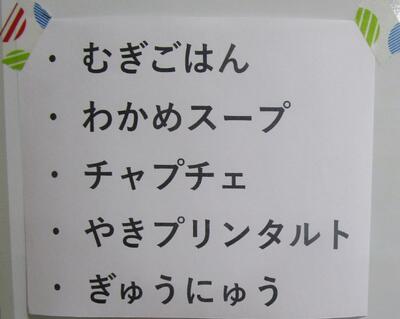 ・むぎごはん
・わかめスープ
・チャプチェ
・やきプリンタルト
・ぎゅうにゅう